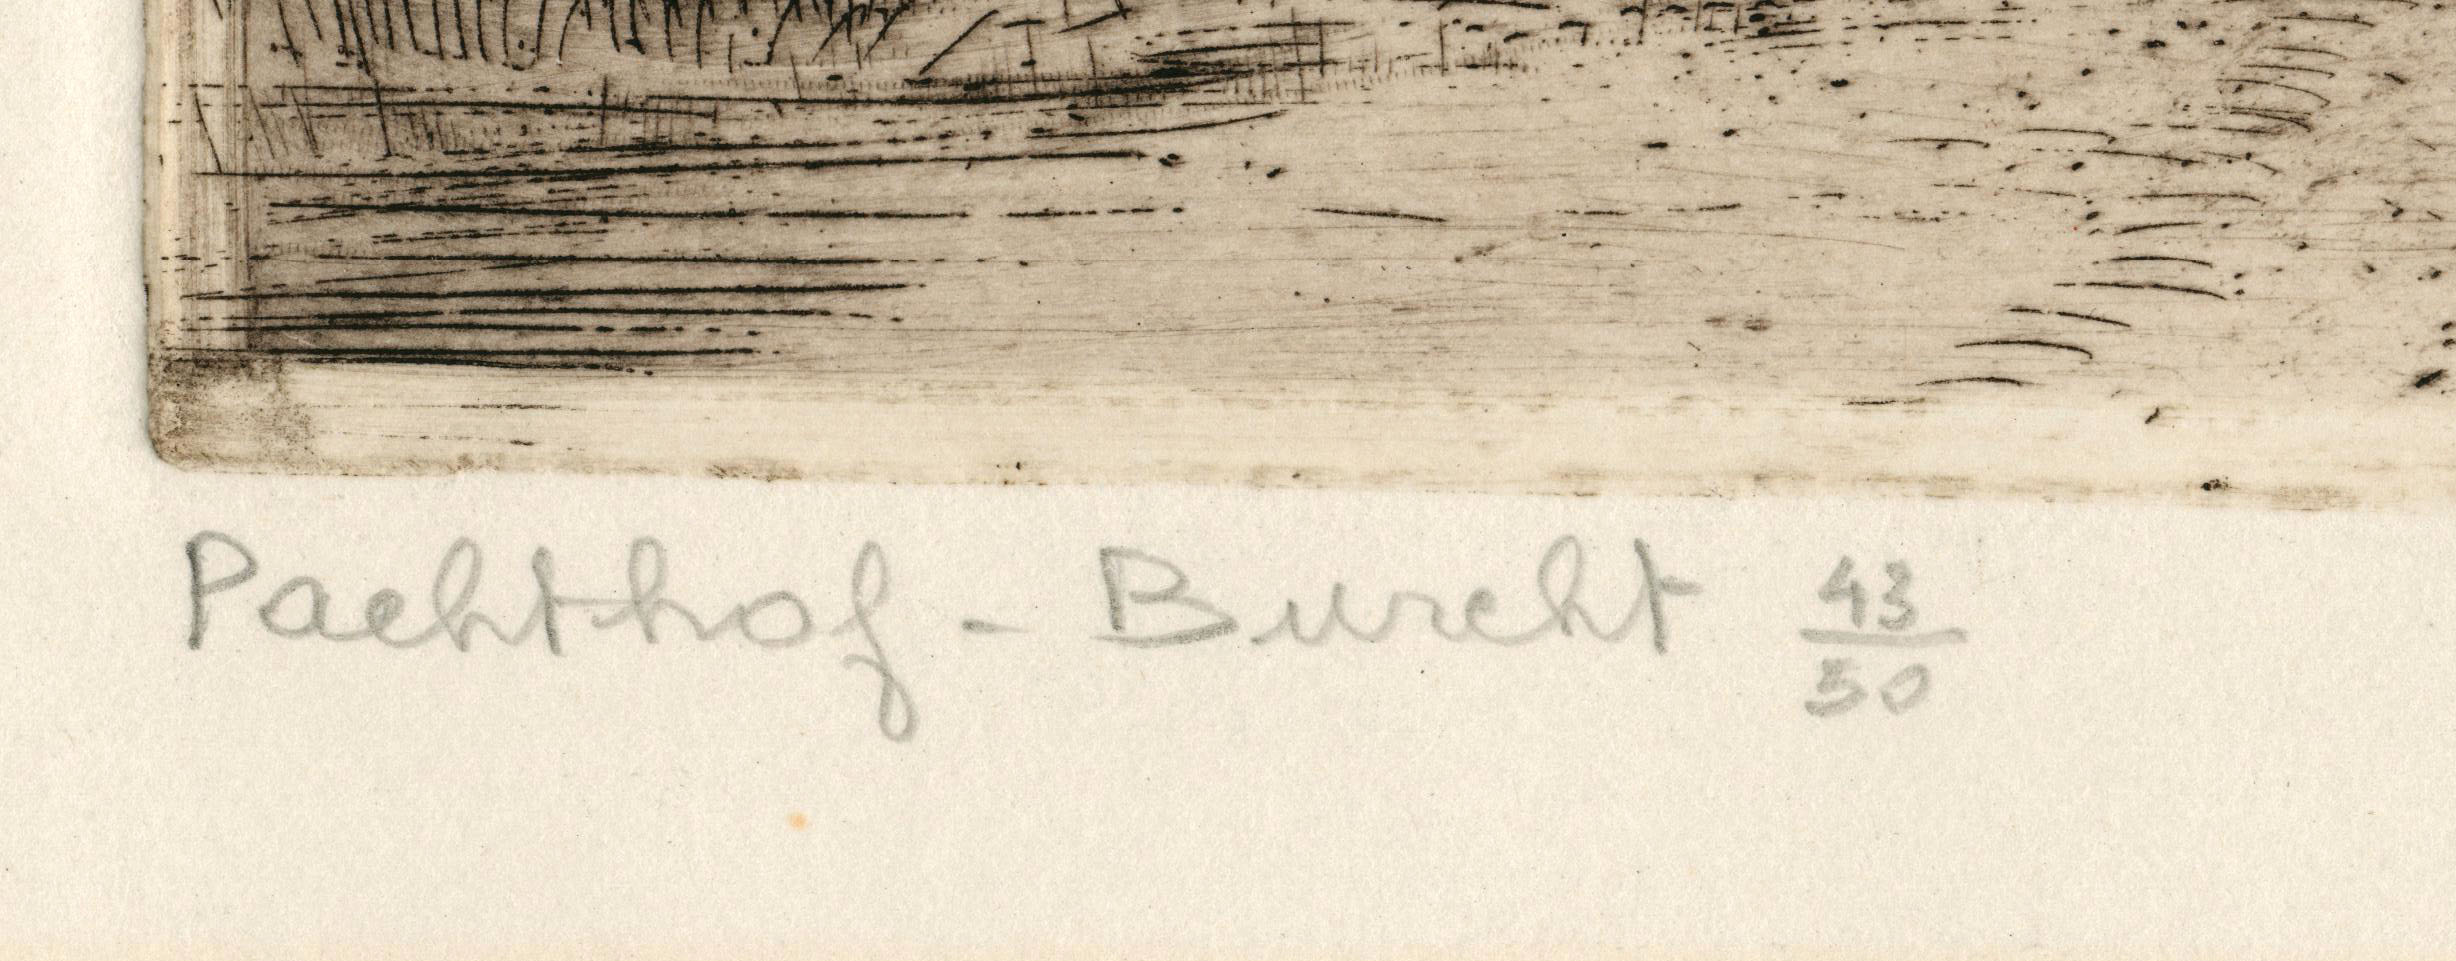 Pachthof - Burcht 43/50